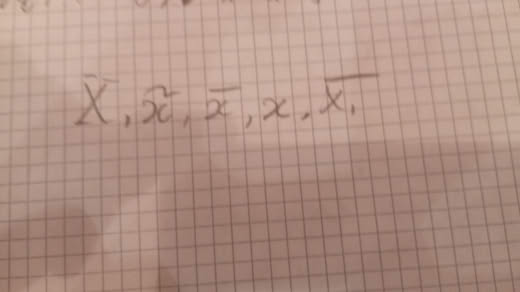 X̄, x̃, x̄, x, x̄₁